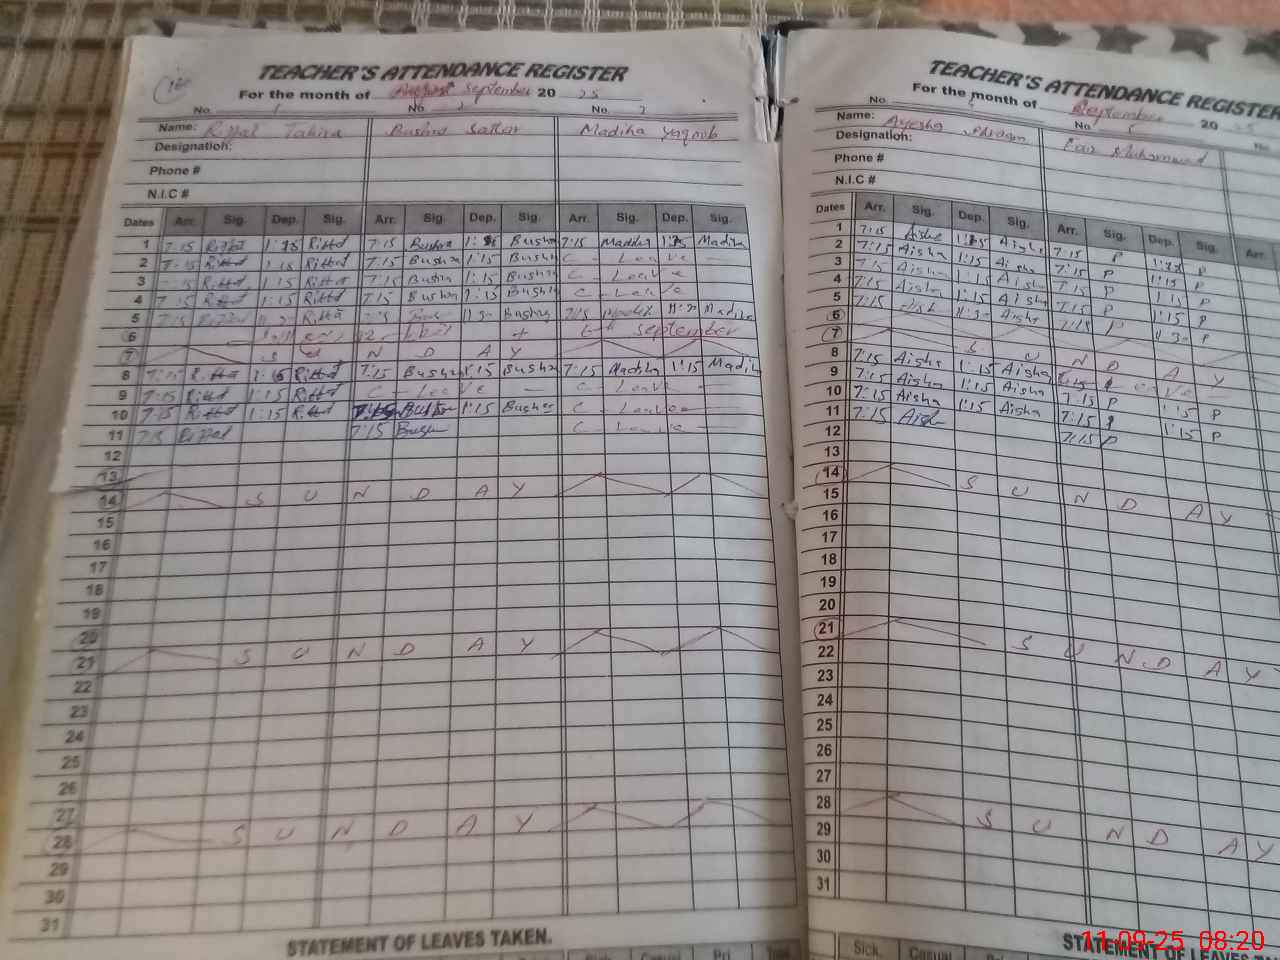 TEACHER'S ATTENDANCE REGISTER
For the month of August September 20 25
No 1 No 2 No. 3
Name: Riffat Tahira Bushra Sattar Madiha Yaqoob
Designation:
Phone #
N.I.C #
Dates Arr. Sig. Dep. Sig. Arr. Sig. Dep. Sig. Arr. Sig. Dep. Sig.
1 7:15 Riffat 1:15 Riffat 7:15 Bushra 1:15 Bushra 7:15 Madiha 1:15 Madiha
2 7:15 Riffat 1:15 Riffat 7:15 Bushra 1:15 Bushra C - Leave -
3 7:15 Riffat 1:15 Riffat 7:15 Bushra 1:15 Bushra C - Leave
4 7:15 Riffat 1:15 Riffat 7:15 Bushra 1:15 Bushra C - Leave
5 7:15 Riffat 11:30 Riffat 7:15 11:30 Bushra 7:15 Madiha 11:30 Madiha
6 6th September
7 S U N D A Y
8 7:15 Riffat 1:15 Riffat 7:15 Bushra 1:15 Bushra 7:15 Madiha 1:15 Madiha
9 7:15 Riffat 1:15 Riffat C - Leave - C - Leave -
10 7:15 Riffat 1:15 Riffat 7:15 Bushra 1:15 Bushra C - Leave -
11 7:15 Riffat 7:15 Bushra C - Leave -
12
13
14 S U N D A Y
15
16
17
18
19
20
21 S U N D A Y
22
23
24
25
26
27
28 S U N D A Y
29
30
31
STATEMENT OF LEAVES TAKEN.
TEACHER'S ATTENDANCE REGISTER
For the month of September 20 25
No No No.
Name: Ayesha
Designation:
Phone #
N.I.C #
Dates Arr. Sig. Dep. Sig. Arr. Sig. Dep. Sig. Arr.
1 7:15 Aisha 1:15 Aisha 7:15 P 1:15 P
2 7:15 Aisha 1:15 Aisha 7:15 P 1:15 P
3 7:15 Aisha 1:15 Aisha 7:15 P 1:15 P
4 7:15 Aisha 1:15 Aisha 7:15 P 1:15 P
5 7:15 Aisha 11:30 Aisha 7:15 P 11:30 P
6
7 S U N D A Y
8 7:15 Aisha 1:15 Aisha Leave
9 7:15 Aisha 1:15 Aisha 7:15 P 1:15 P
10 7:15 Aisha 1:15 Aisha 7:15 P 1:15 P
11 7:15 Aisha 7:15 P
12
13
14 S U N D A Y
15
16
17
18
19
20
21 S U N D A Y
22
23
24
25
26
27
28 S U N D A Y
29
30
31
STATEMENT OF LEAVES
Sick. Casual
11-09-25 08:20